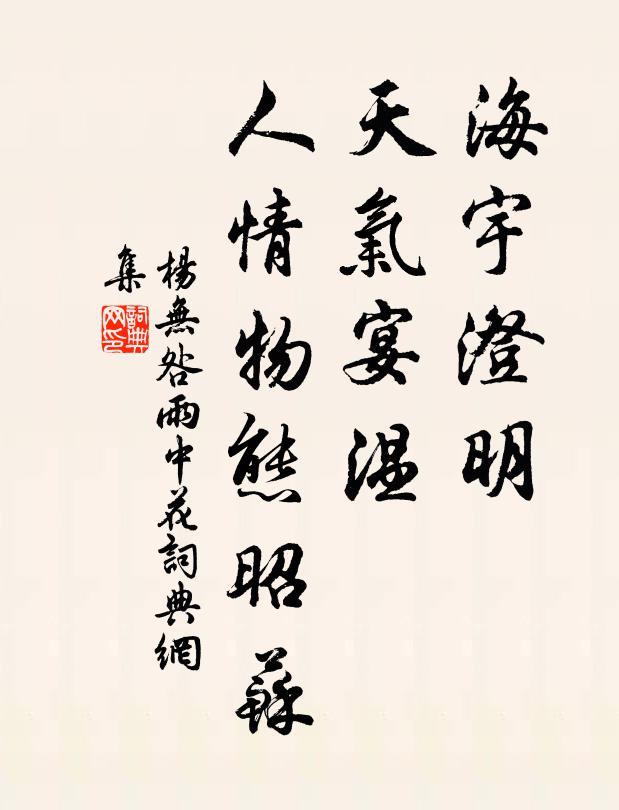 海宇澄明
天氣宴温
人情物態昭蘇
楊無咎雨中花詞典網
集
詞典
网印